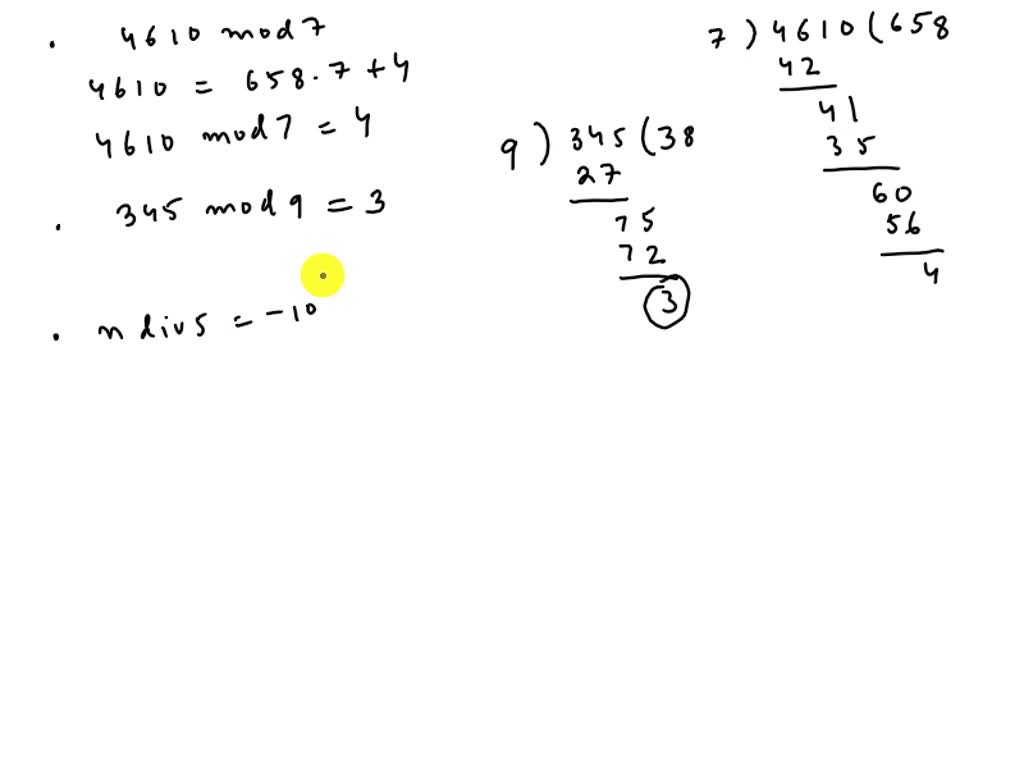 . 4610 mod 7
4610 = 658 . 7 + 4
4610 mod 7 = 4
. 345 mod 9 = 3
. n div 5 = -10
9 ) 345 ( 38
27
75
72
3
7 ) 4610 ( 658
42
41
35
60
56
4